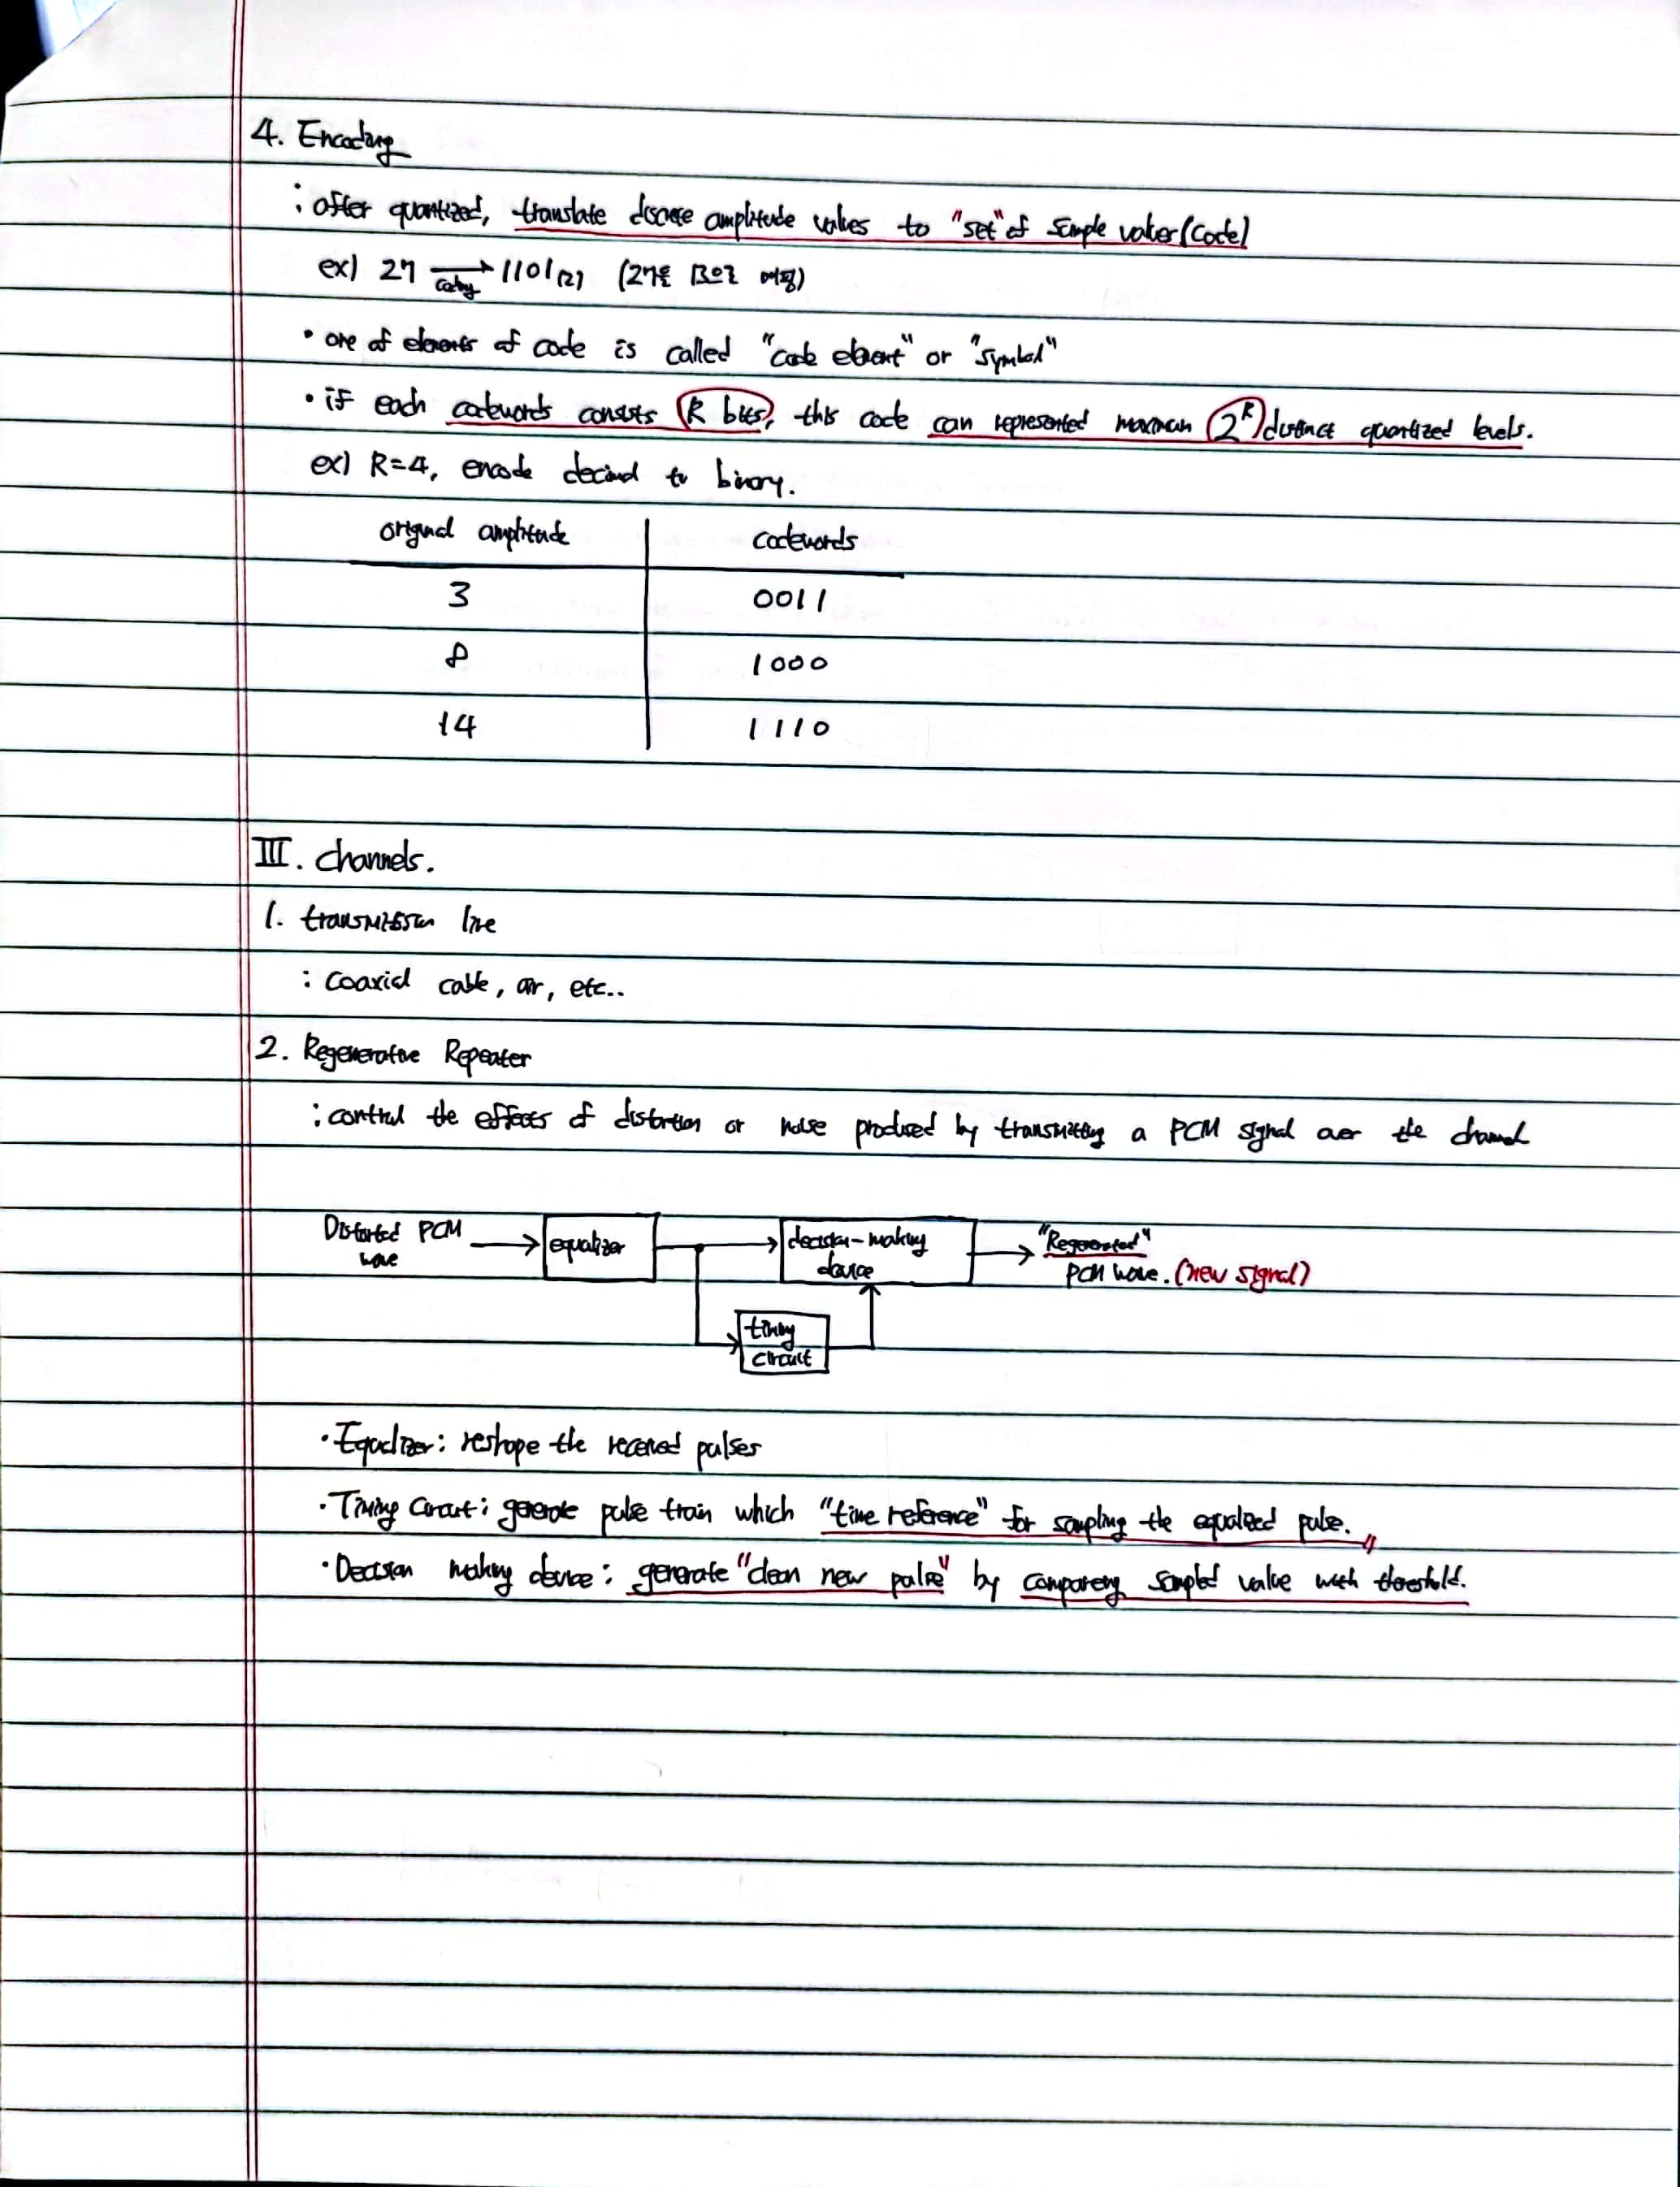 4. Encoding
: after quantized, translate discrete amplitude values to "set" of simple values (code)
ex) 27 → coding 1101(2) (27을 13으로 매핑)
• one of elements of code is called "code element" or "symbol"
• if each codewords consists R bits, this code can represented maximum 2^R distinct quantized levels.
ex) R=4, encode decimal to binary.
original amplitude codewords
3 0011
8 1000
14 1110
III. channels.
1. transmission line
: coaxial cable, air, etc..
2. Regenerative Repeater
: control the effects of distortion or noise produced by transmitting a PCM signal over the channel
Distorted PCM wave
equalizer
decision-making device
"Regenerated" PCM wave. (new signal)
timing circuit
• Equalizer: reshape the received pulses
• Timing circuit: generate pulse train which "time reference" for sampling the equalized pulse.
• Decision making device: generate "clean new pulse" by comparing sampled value with threshold.